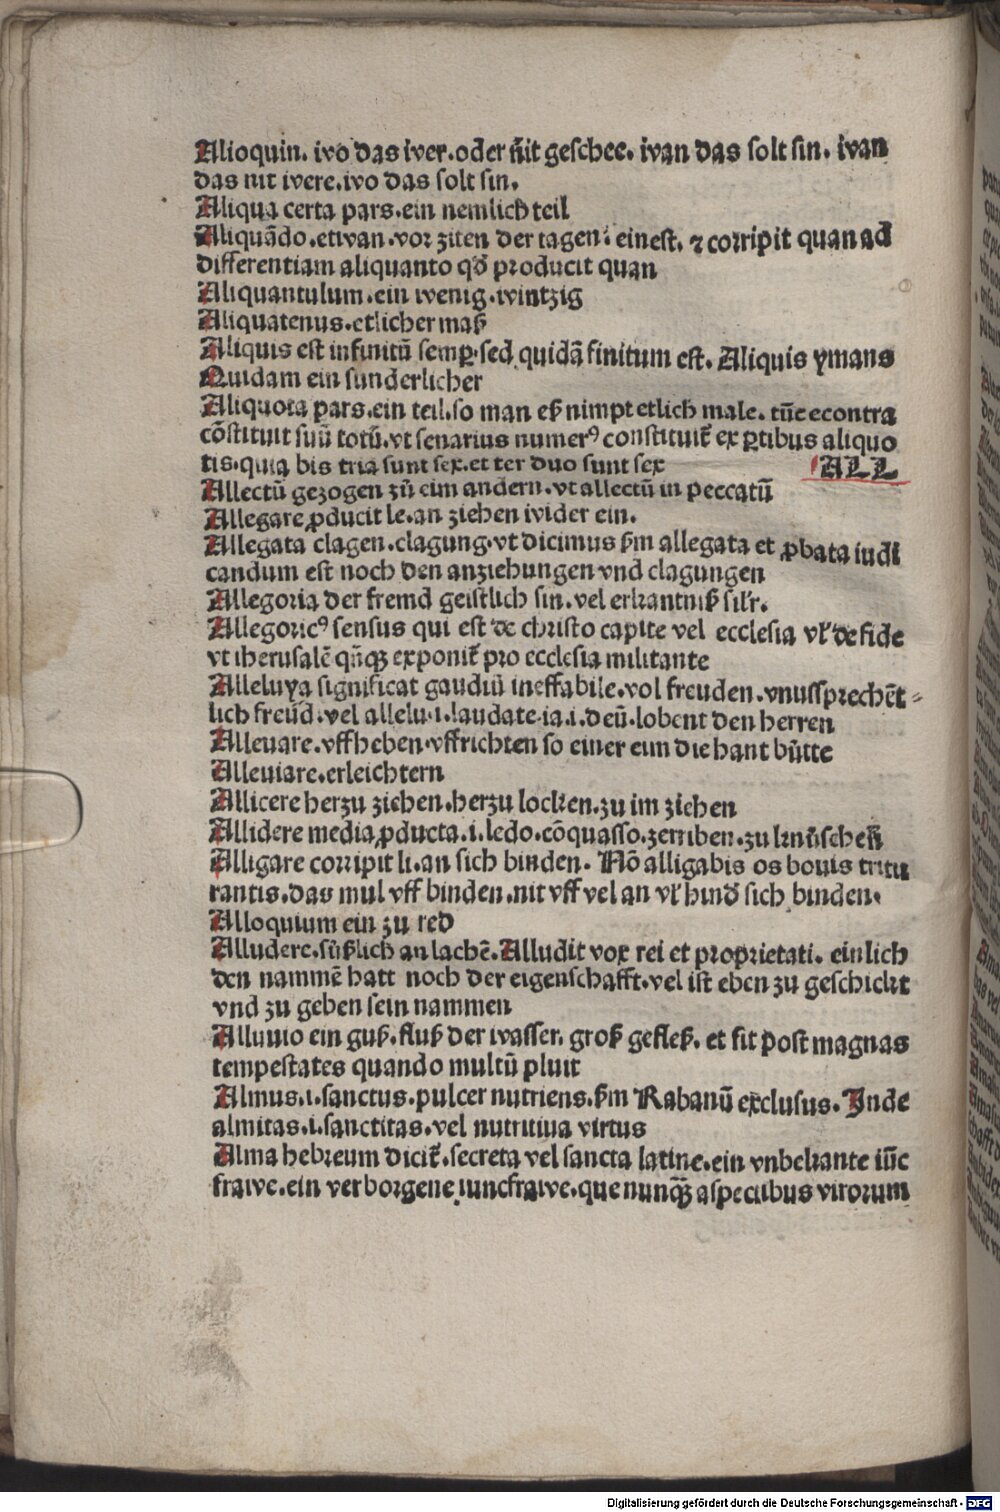 Alioquin. wo das wer. oder nit geschee. wan das solt sin. wan
das nit were. wo das solt sin.
Aliqua certa pars. ein nemlich teil
Aliquādo. etwan. vor ziten der tagen. einest. ⁊ corripit quan ad
differentiam aliquanto qd̕ producit quan
Aliquantulum. ein wenig. wintzig
Aliquatenus. etlicher maß
Aliquis est infinitū semꝑ. sed quidā finitum est. Aliquis ymans
Quidam ein sunderlicher
Aliquota pars. ein teil. so man eß nimpt etlich male. tūc econtra
cōstituit suū totū. vt senarius numerꝰ constituit᷑ ex ꝑtibus aliquo
tis. quia bis tria sunt sex. et ter duo sunt sex
ALL
Allectū gezogen zů eim andern. vt allectū in peccatū
Allegare ꝓducit le. an ziehen wider ein.
Allegata clagen. clagung. vt dicimus ẜm allegata et ꝓbata iudi
candum est noch den anziehungen vnd clagungen
Allegoria der fremd geistlich sin. vel erkantniß sil'r.
Allegoricꝰ sensus qui est de christo capite vel ecclesia vl' de fide
vt iherusalē qn̄qꝫ exponit᷑ pro ecclesia militante
Alleluya significat gaudiū ineffabile. vol freuden. vnussprechēt⸗
lich freůd. vel allelu. i. laudate. ia. i. deū. lobent den herren
Alleuare. vffheben. vffrichten so einer eim die hant bůtte
Alleuiare. erleichtern
Allicere herzu ziehen. herzu locken. zu im ziehen
Allidere media ꝓducta. i. ledo. cōquasso. zerriben. zu knůschen
Alligare corripit li. an sich binden. Nō alligabis os bouis tritu
rantis. das mul vff binden. nit vff vel an vl' hind̕ sich binden.
Alloquium ein zu red
Alludere. sůßlich an lachē. Alludit vox rei et proprietati. ein lich
den nammē hatt noch der eigenschafft. vel ist eben zu geschickt
vnd zu geben sein nammen
Alluuio ein guß. fluß der wasser. groß gefleß. et fit post magnas
tempestates quando multū pluit
Almus. i. sanctus. pulcer nutriens. ẜm Rabanū exclusus. Inde
almitas. i. sanctitas. vel nutritiua virtus
Alma hebreum dicit᷑. secreta vel sancta latine. ein vnbekante iūc
frawe. ein verborgene iuncfrawe. que nunqꝫ aspectibus virorum
Digitalisierung gefördert durch die Deutsche Forschungsgemeinschaft - DFG